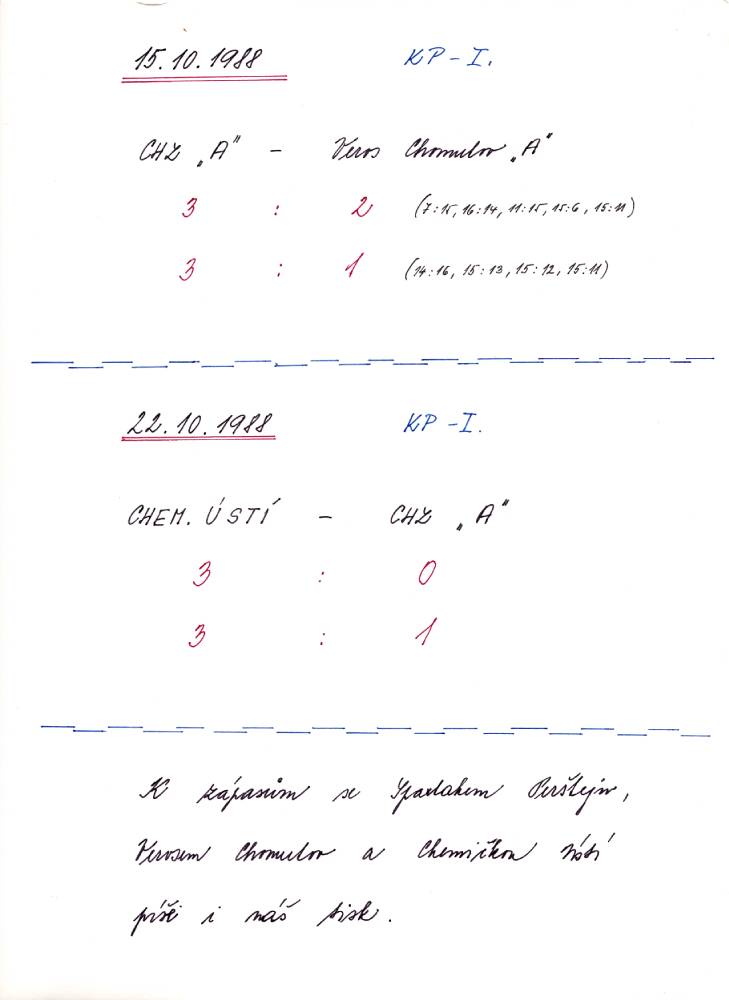 15.10.1988 KP-I.
CHZ „A" - Veros Chomutov „A"
3 : 2 (7:15, 16:14, 11:15, 15:6, 15:11)
3 : 1 (14:16, 15:13, 15:12, 15:11)
22.10.1988 KP-I.
CHEM. ÚSTÍ - CHZ „A"
3 : 0
3 : 1
K zápasům se Spartakem Perštejn,
Verosem Chomutov a Chemičkou Ústí
píše i náš tisk.